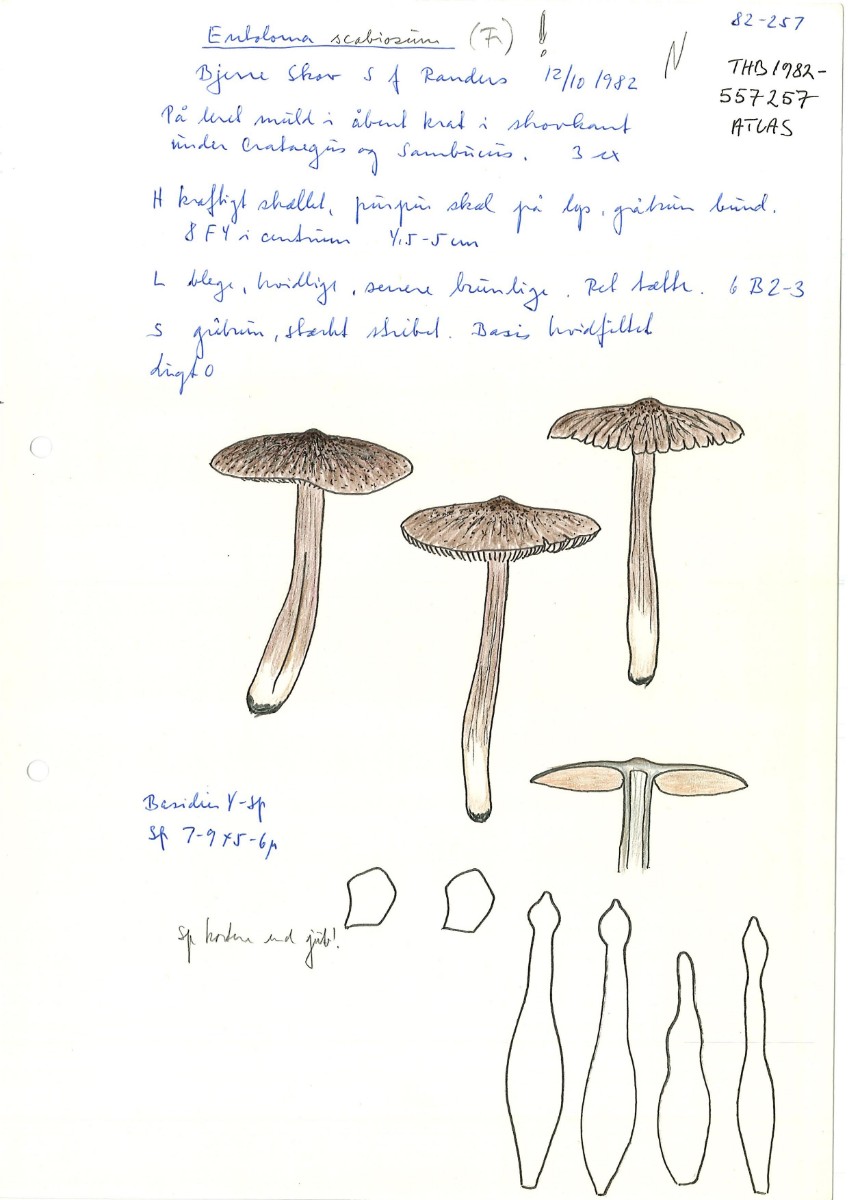 82-257
Entoloma scabiosum (Fr) !
N
THB1982-
557257
ATLAS
Bjerre Skov S f Randers 12/10 1982
På leret muld i åbent krat i skovkant
under Crataegus og Sambucus. 3 ex
H kraftigt skællet, purpur skæl på lys, gråbrun bund.
8 F 4 i centrum 4,5-5 cm
L blege, hvidlige, senere brunlige. Ret tætte. 6 B 2-3
S gråbrun, stærkt stribet. Basis hvidfiltet
Lugt 0
Basidier 4-sp
Sp 7-9 x 5-6 µ
Sp kortere end